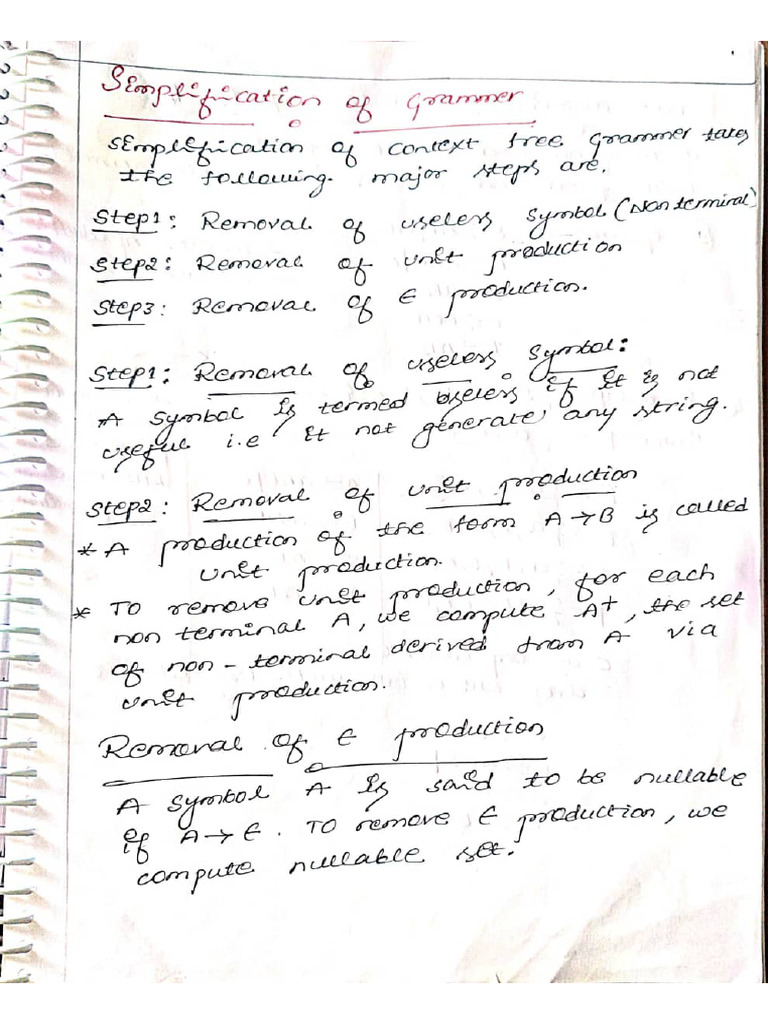 Simplification of Grammer
Simplification of context free Grammer takes
the following major steps are.
Step1: Removal of useless symbol (Non terminal)
Step2: Removal of unit production
Step3: Removal of ∈ production.
Step1: Removal of useless symbol:
A symbol is termed useless if it is not
useful i.e it not generate any string.
Step2: Removal of unit production
* A production of the form A→B is called
unit production.
* To remove unit production, for each
non terminal A, we compute A+, the set
of non-terminal derived from A via
unit production.
Removal of ∈ production
A symbol A is said to be nullable
if A→∈. To remove ∈ production, we
compute nullable set.